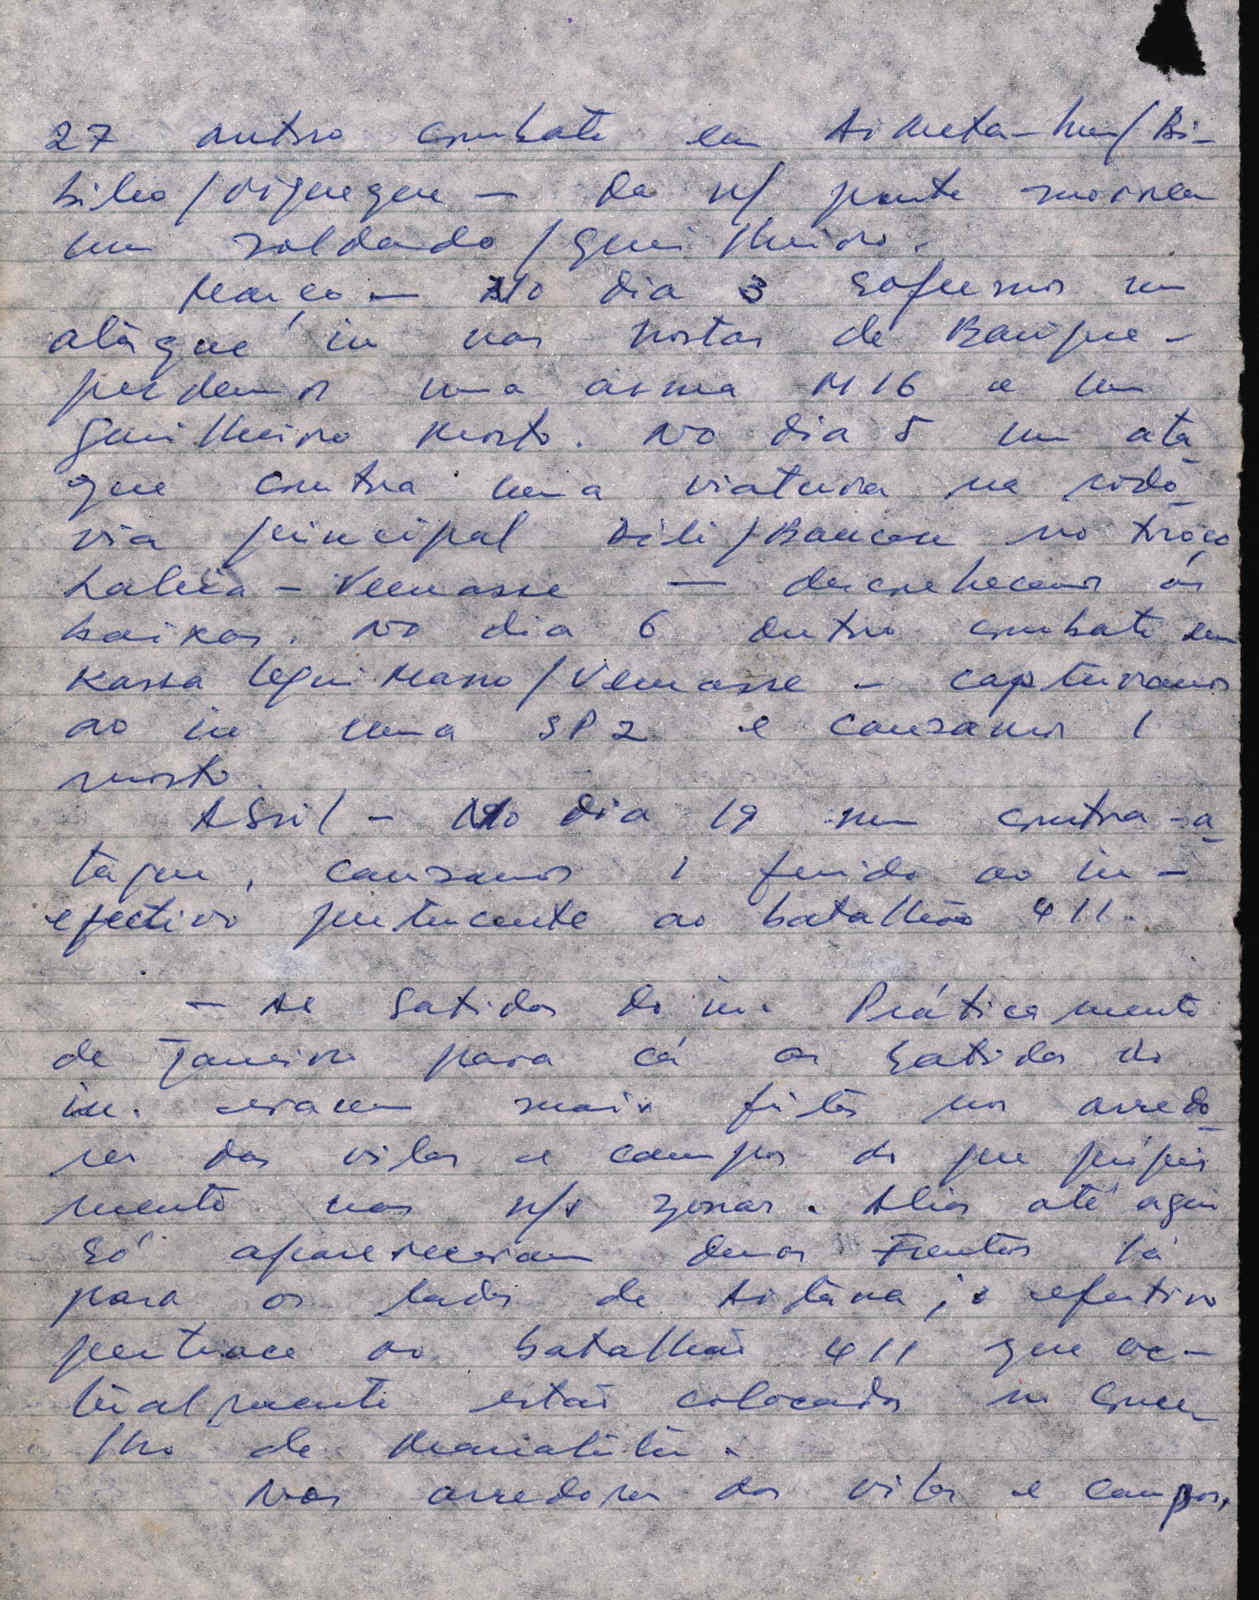 27 outro combate em Aimeta-hun/Bi-
bileo/Viqueque — da n/ parte morreu
um soldado/guerilheiro.
Março — No dia 3 sofremos um
ataque in nas hortas de Bauique -
perdemos uma arma M16 e um
guerilheiro morto. No dia 5 um ata
que contra uma viatura na rodo
via principal Dili/Baucau no troço
Laleia - Vemasse — desconhecemos as
baixas. No dia 6 outro combate em
Kassa legui Masso/Vemasse - capturamos
ao in uma SP2 e causamos 1
morto.
Abril - No dia 19 num contra-a
taque, causamos 1 ferido ao in -
efectivo pertencente ao batalhão 411.
- As batidas do in. Práticamente
de Janeiro para cá as batidas do
in. eram mais feitas nos arredo
res das vilas e campos do que própria
mente nas n/s zonas. Aliás até aqui
só apareceram duas Frentes lá
para os lados de Aitana; o efectivo
pertence ao batalhão 411 que ac-
tualmente estão colocados no Conce
lho de Manatuto.
Nos arredores das vilas e campos,